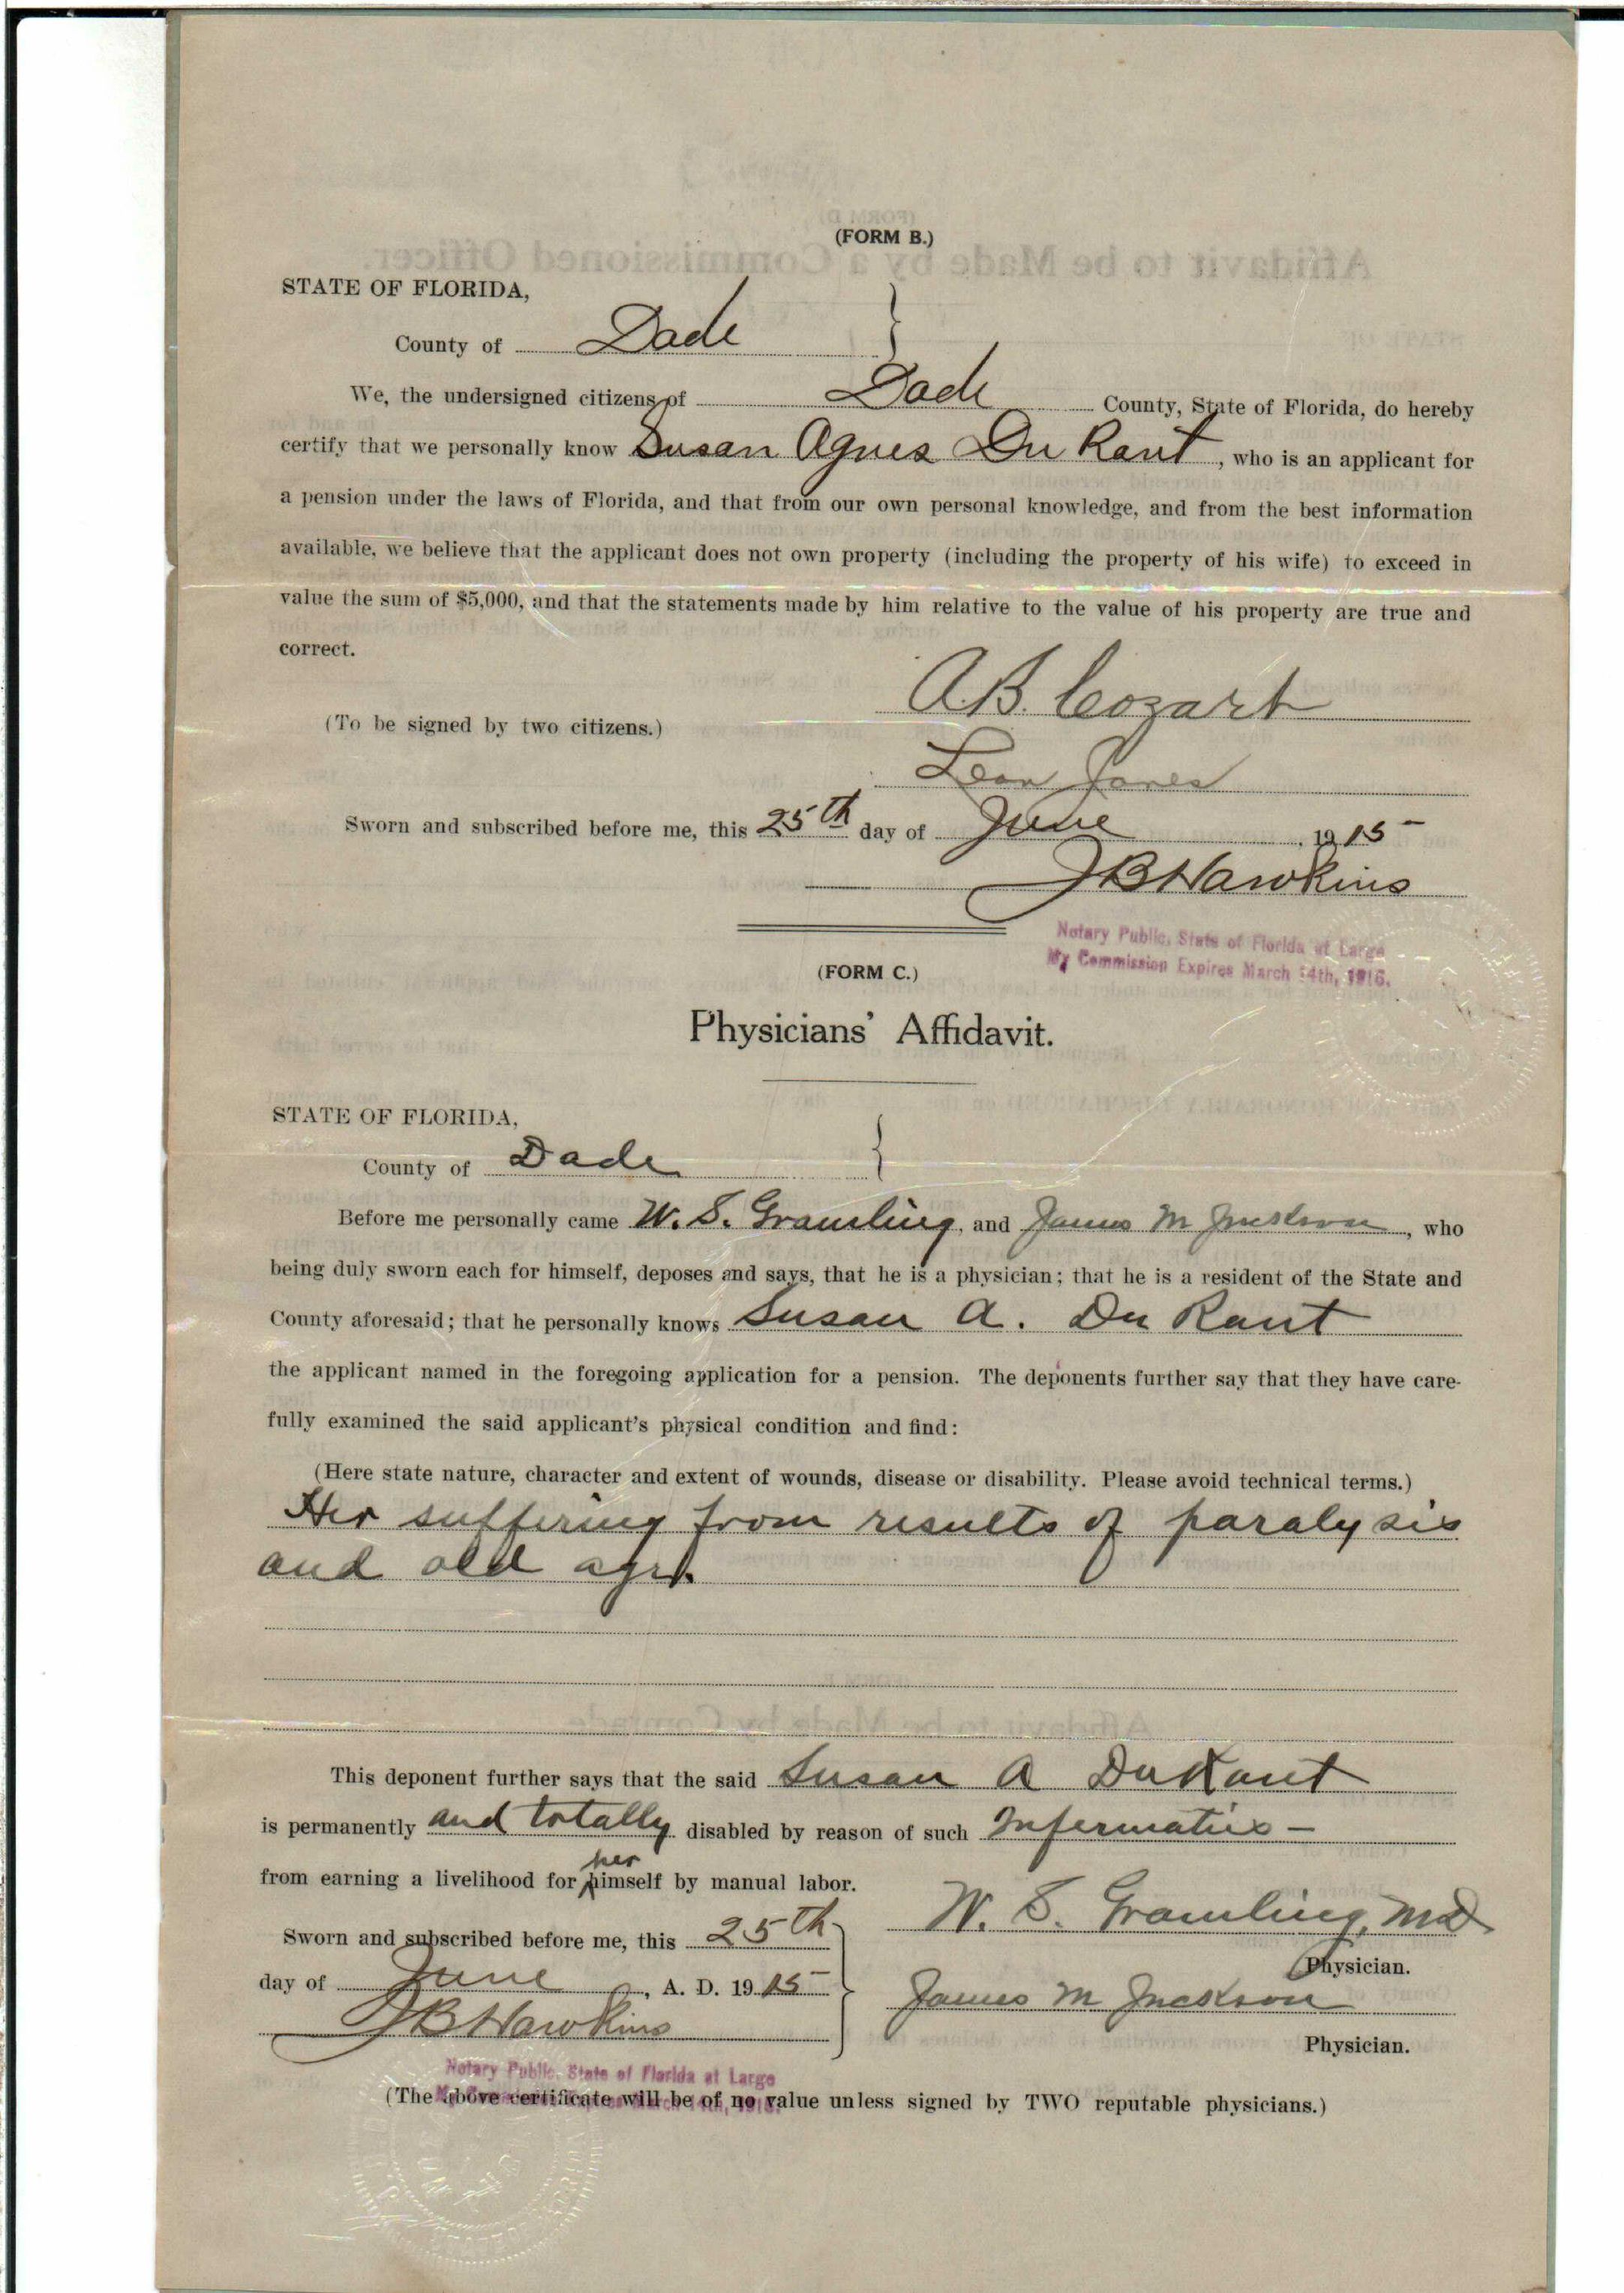 (FORM B.)
STATE OF FLORIDA,
County of Dade
We, the undersigned citizens of Dade County, State of Florida, do hereby
certify that we personally know Susan Agnes Du Rant, who is an applicant for
a pension under the laws of Florida, and that from our own personal knowledge, and from the best information
available, we believe that the applicant does not own property (including the property of his wife) to exceed in
value the sum of $5,000, and that the statements made by him relative to the value of his property are true and
correct.
A.B. Cozart
(To be signed by two citizens.)
Leon Jones
Sworn and subscribed before me, this 25th day of June, 1915
J B Hawkins
Notary Public, State of Florida at Large
My Commission Expires March 14th, 1916.
(FORM C.)
Physicians' Affidavit.
STATE OF FLORIDA,
County of Dade
Before me personally came W. S. Gramling, and James M Jackson, who
being duly sworn each for himself, deposes and says, that he is a physician; that he is a resident of the State and
County aforesaid; that he personally knows Susan A. Du Rant
the applicant named in the foregoing application for a pension. The deponents further say that they have care-
fully examined the said applicant's physical condition and find:
(Here state nature, character and extent of wounds, disease or disability. Please avoid technical terms.)
Her suffering from results of paralysis
and old age.
This deponent further says that the said Susan A DuRant
is permanently and totally disabled by reason of such
her
from earning a livelihood for himself by manual labor.
W. S. Gramling, MD
Sworn and subscribed before me, this 25th
Physician.
day of June, A. D. 1915
James M Jackson
J B Hawkins
Physician.
Notary Public, State of Florida at Large
(The above certificate will be of no value unless signed by TWO reputable physicians.)